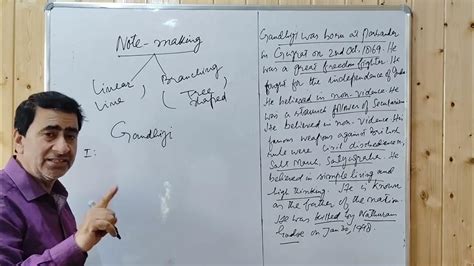 Note-making
Linear, Branching
Line ( Tree
shaped
Gandhiji
I:
Gandhiji was born at Porbandar
in Gujrat on 2nd Oct. 1869. He
was a great freedom fighter. He
fought for the independence of India
He believed in non-violence. He
was a staunch follower of Secularism.
He believed in non-violence. His
famous weapons against British
rule were civil disobedience,
Salt March, Satyagraha. He
believed in simple living and
high thinking. He is known
as the father of the nation.
He was killed by Nathuram
Godse on Jan 30, 1948.